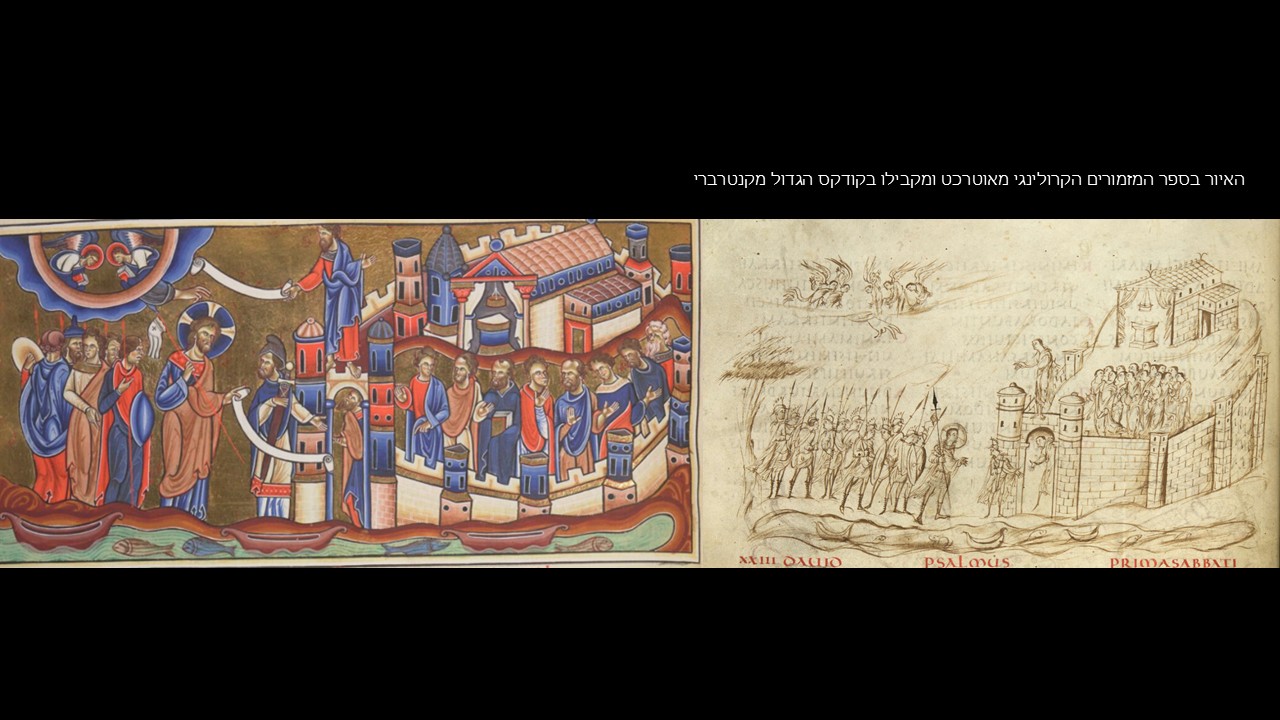 האיור בספר המזמורים הקרולינגי מאוטרכט ומקבילו בקודקס הגדול מקנטרברי
XXIII DAUID PSALMUS PRIMASABBATI